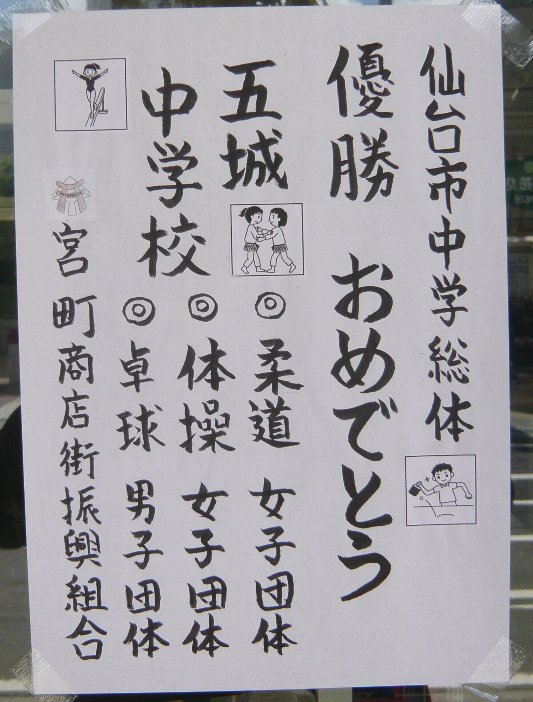 仙台市中学総体
優勝 おめでとう
五城
中学校
◎柔道 女子団体
◎体操 女子団体
◎卓球 男子団体
宮町商店街振興組合